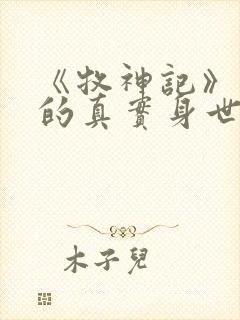 《牧神記》
的真實身世
木子兒